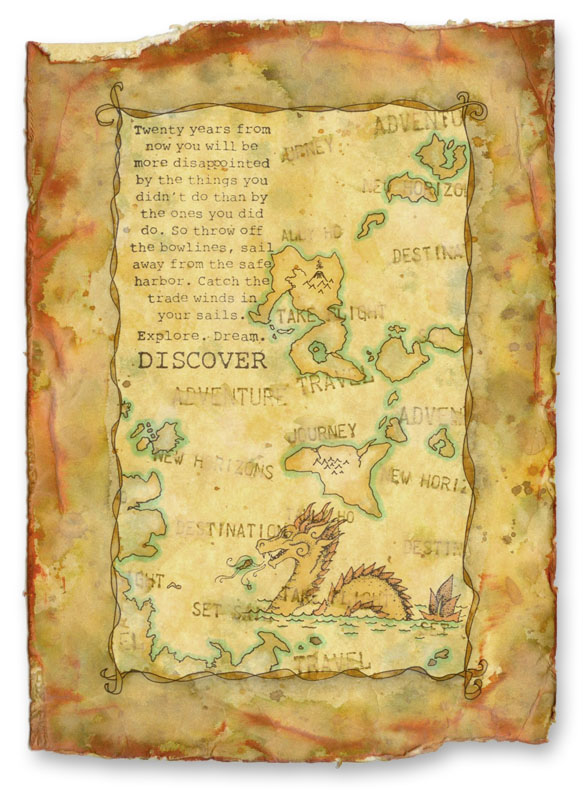 Twenty years from
now you will be
more disappointed
by the things you
didn't do than by
the ones you did
do. So throw off
the bowlines, sail
away from the safe
harbor. Catch the
trade winds in
your sails.
Explore. Dream.
DISCOVER
ADVENTU
NEW HORIZO
DESTINA
TAKE FLIGHT
TRAVEL
ADVENTURE
ADVEN
JOURNEY
NEW HORIZONS
NEW HORIZ
DESTINATION
DESTIN
IGHT
TAKE FLIGHT
SET
SET
TRAVEL